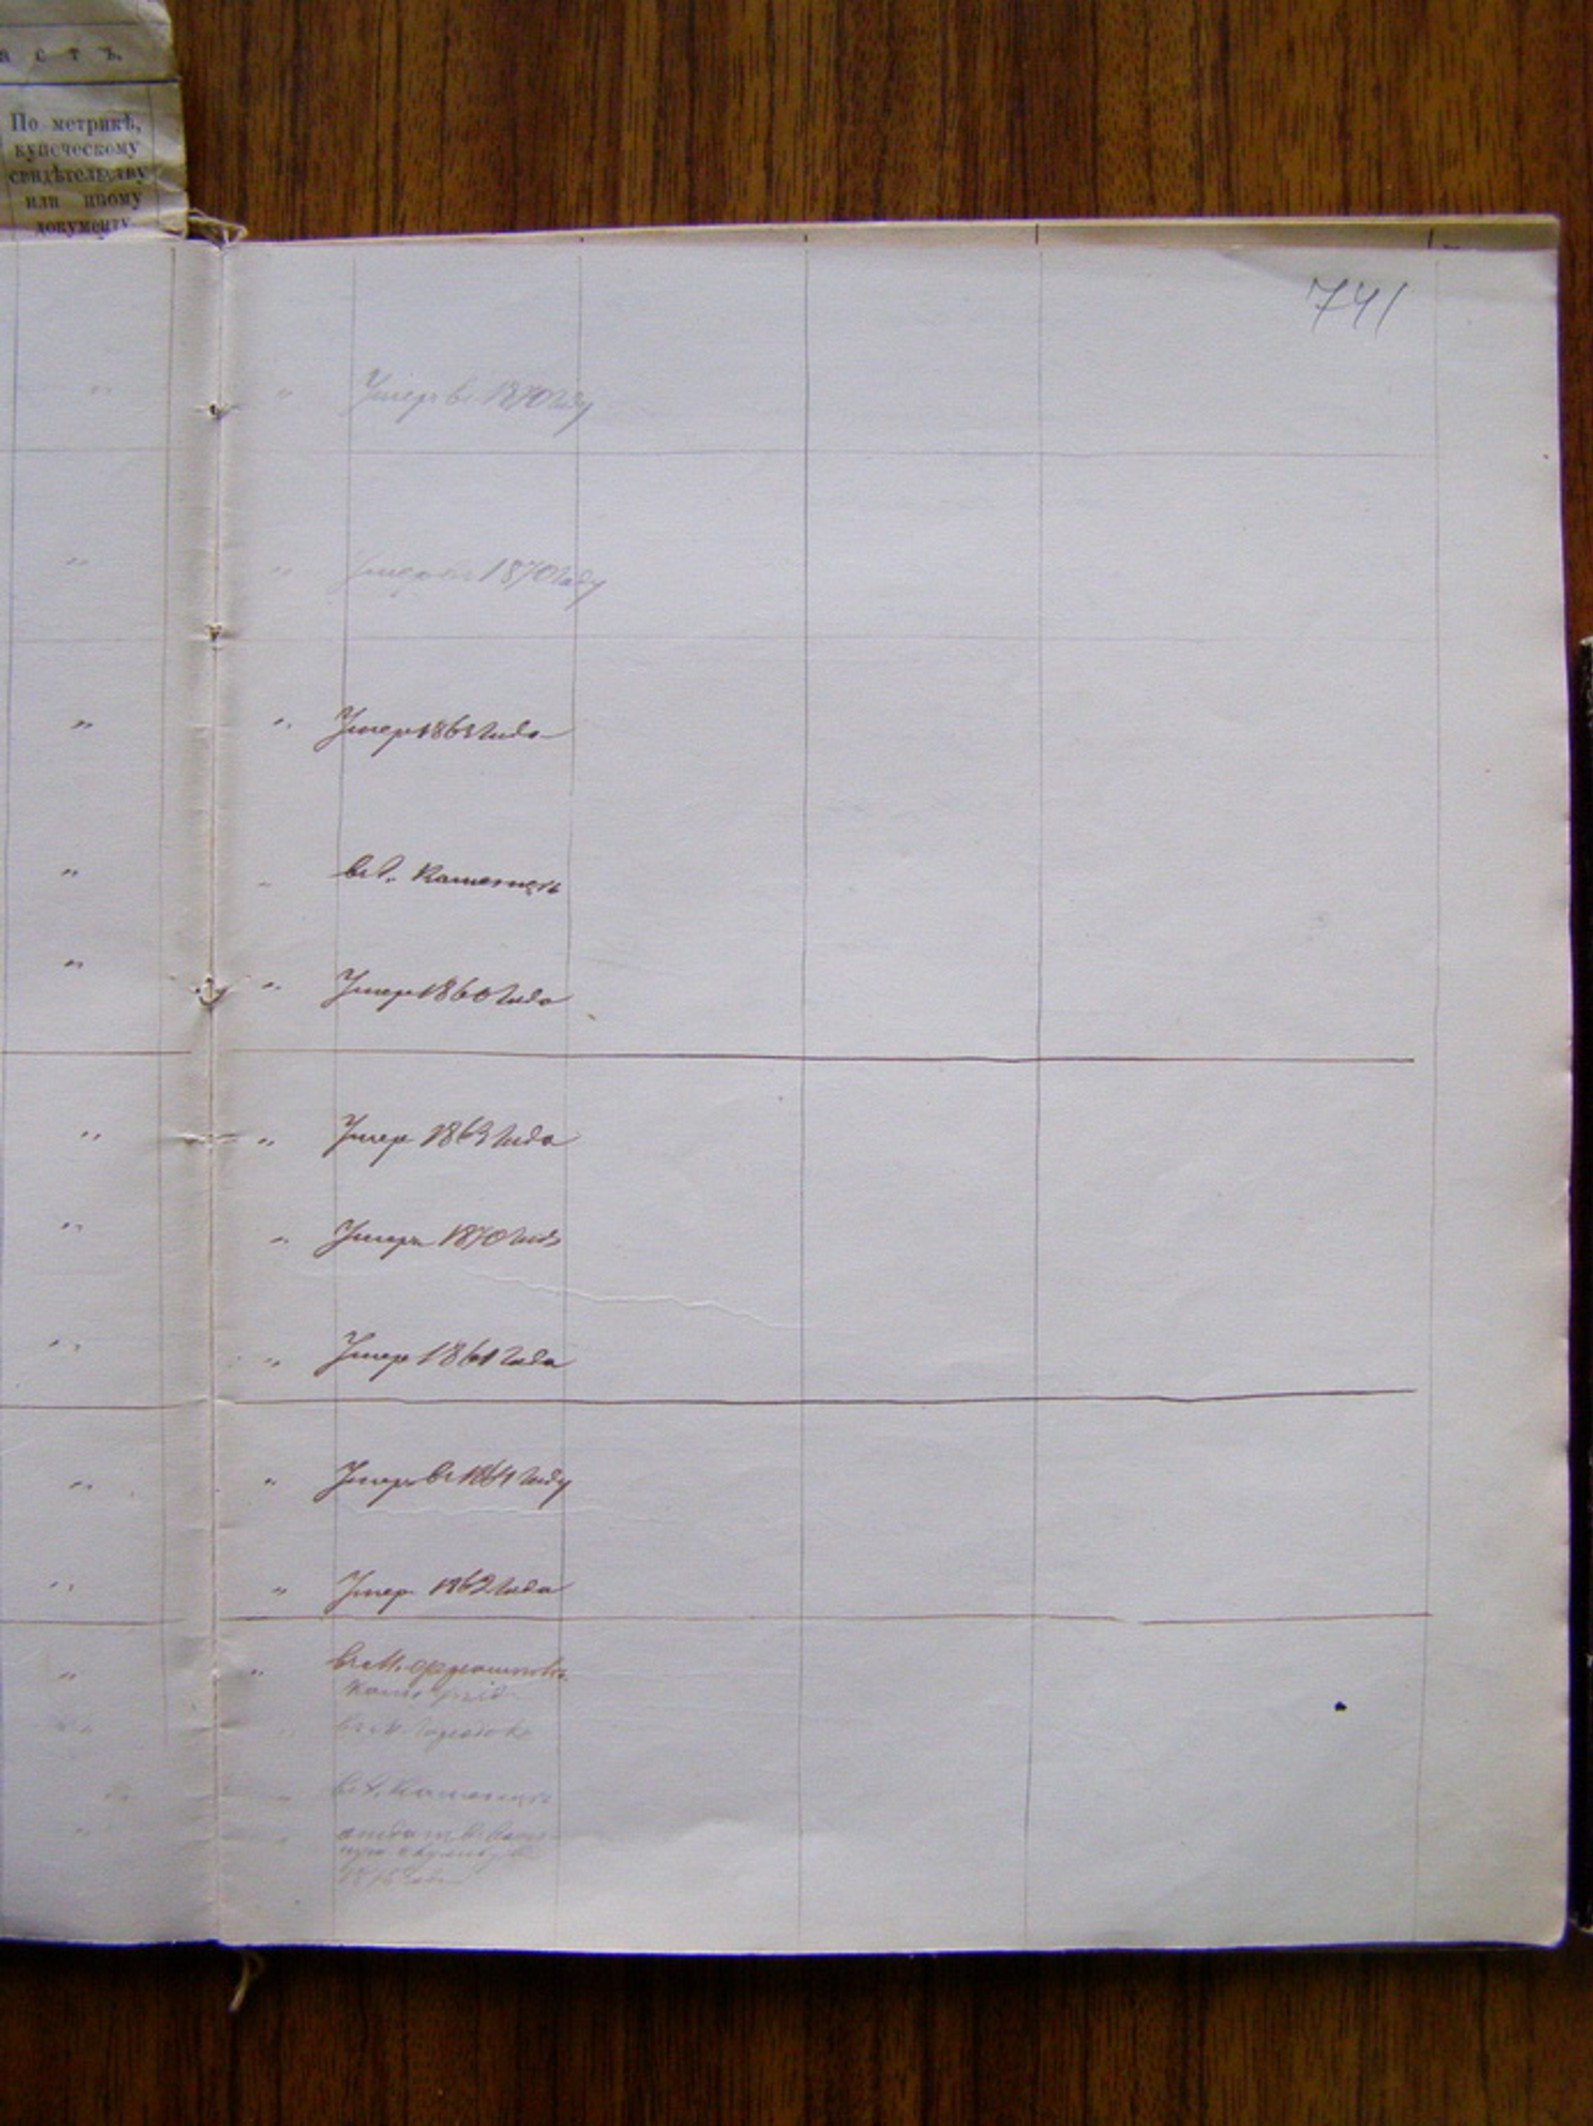 а с т ь.
По метрикѣ,
купеческому
свидѣтельству
или иному
документу
741
" " Умеръ въ 1870 году
" " Умеръ въ 1870 году
" " Умеръ года
" " въ г. Каменцѣ
" " Умеръ 1860 года
" " Умеръ 1863 года
" " Умеръ 1870 года
" " Умеръ 1861 года
" " Умеръ въ 1861 году
" " Умеръ 1862 года
" " въ М.
" " въ М. Городокѣ
" " въ г. Каменцѣ
" " отданъ въ
года